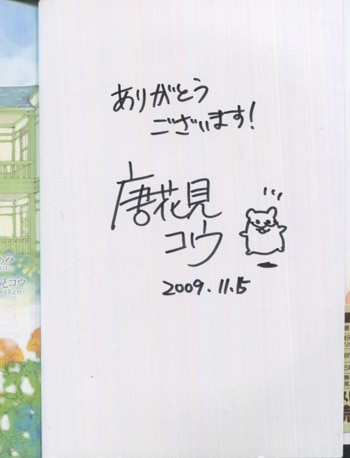 ありがとう
ございます!
唐花見
コウ
2009.11.15
見コウ